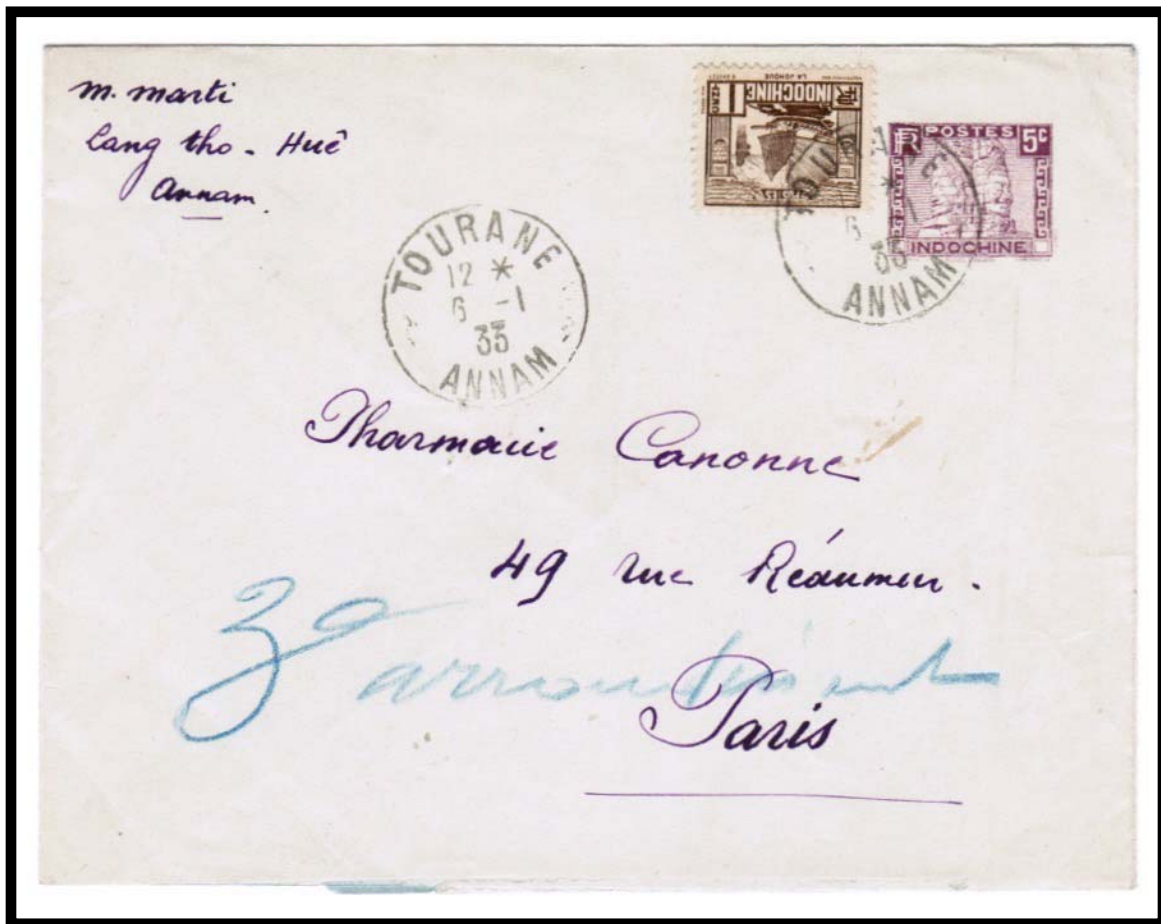 m. marti
Lang tho - Huê
Annam.
INDOCHINE
LA JONQUE
RF POSTES 5c
INDOCHINE
TOURANE
12 *
6 -1
33
ANNAM
TOURANE
*
6 -1
33
ANNAM
Pharmacie Canonne
49 rue Réaumur.
3e arrondiment
Paris